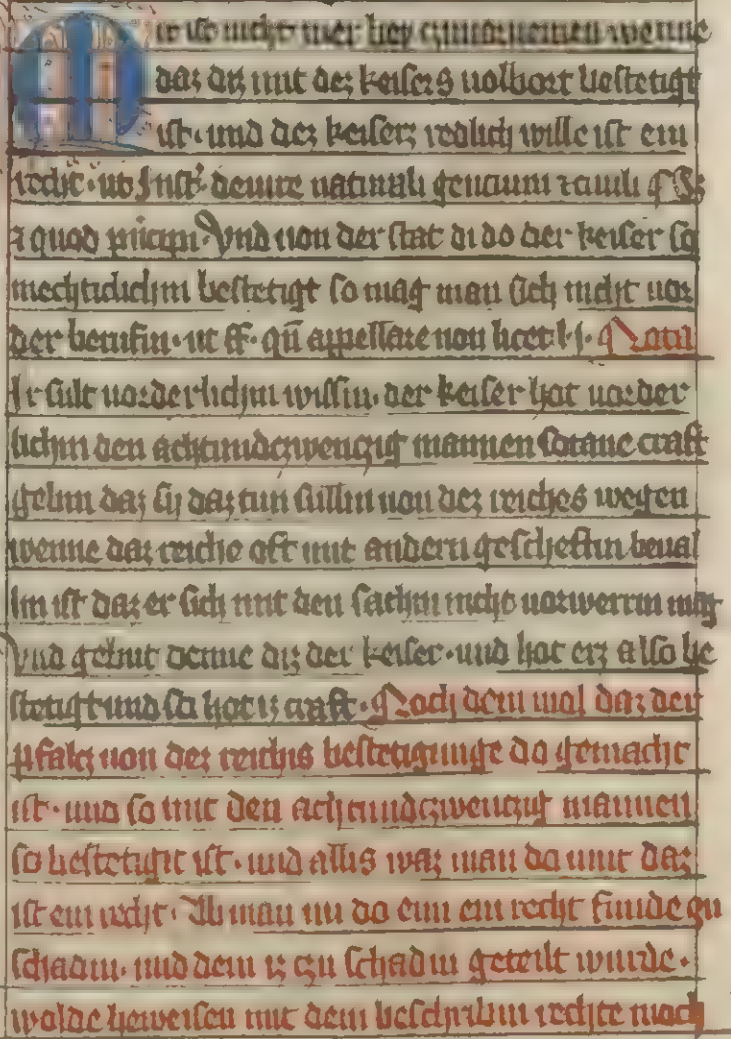 ir ist nicht mer hey czumornemen wenne
daz diz mit dez keisers uolbort bestetigt
ist · und dez keiserz redlich wille ist ein
recht · ut Inst. de iure naturali gencium ⁊ ciuili §
⁊ quod principi · Vnd uon der stat di do der keiser so
mechticlichin bestetigt so mag man sich nicht uor
der berufin · ut ff. qn̄ appellare non licet l. j. Nota
Ir sult uorderlichin wissin · der keiser hot uorder
lichin den achtundczwenczig mannen sotane craft
gebin daz sy daz tun sullin uon dez reiches wegen
wenne daz reiche oft mit andern gescheftin beual
lin ist daz er sich mit den sachin nicht uorwerrin mag
Vnd gebut denne diz der keiser · und hot erz also be
stetigt und so hot iz craft · Noch dem mol daz der
pfalcz uon dez reichis bestetigunge do gemacht
ist · und so mit den achtundczwenczig mannen
so bestetigit ist · und allis waz man do mit daz
ist ein recht · Ab man nu do eim ein recht funde zu
schadin · und dem iz czu schadin geteilt wurde ·
wolde beweisen mit dem beschribin rechte moch